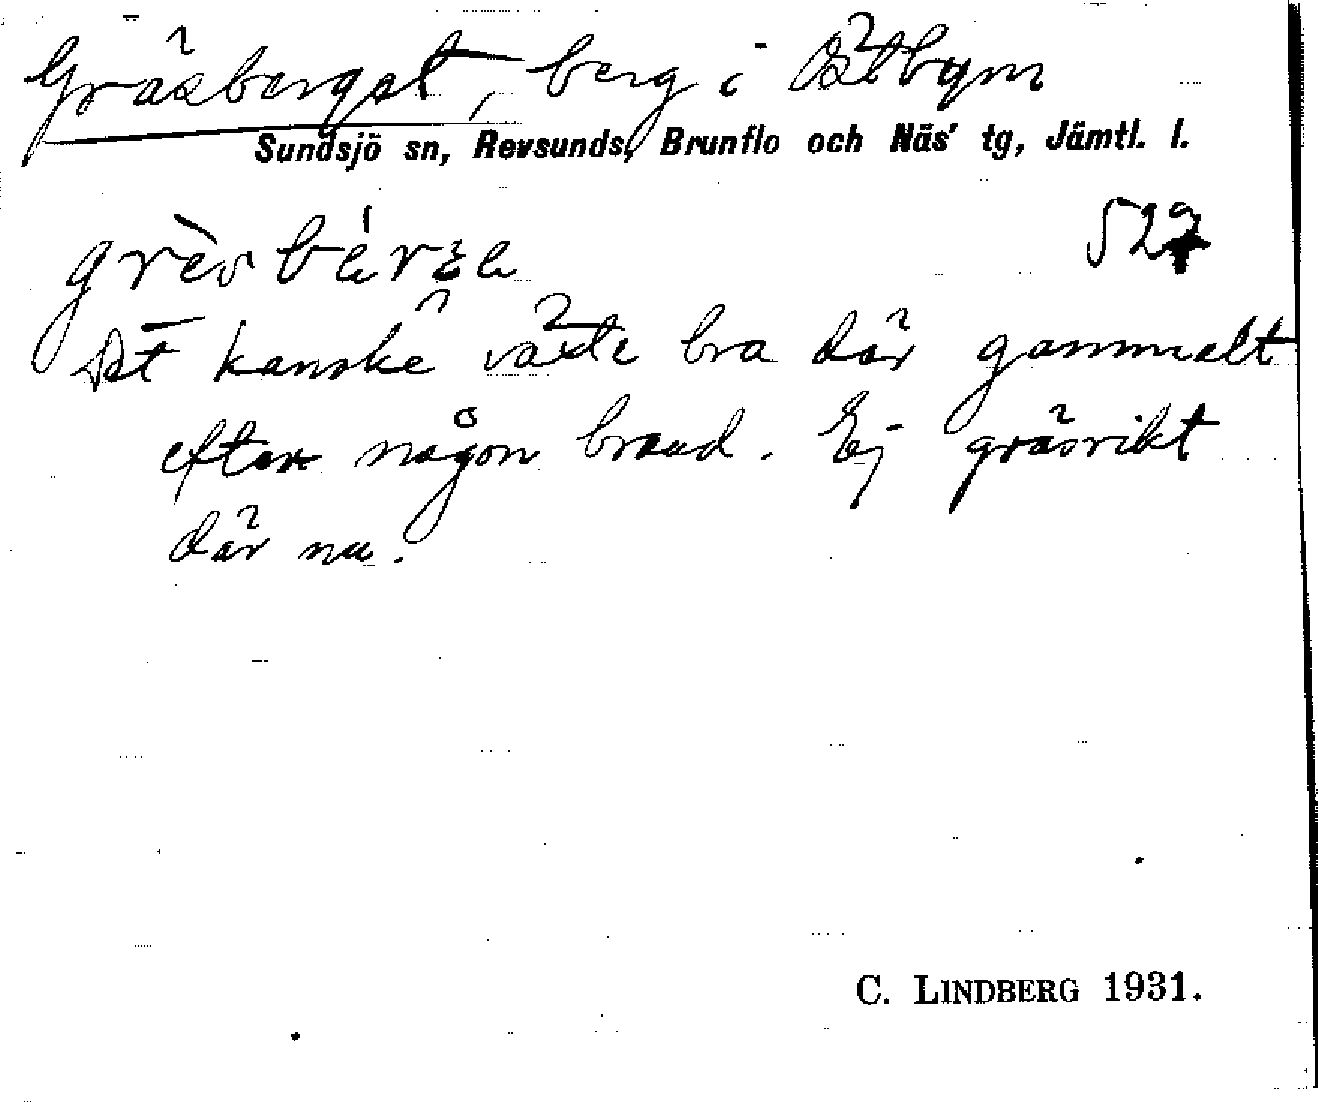 Gräsberget, berg i Östbyn
Sundsjö sn, Revsunds, Brunflo och Näs' tg, Jämtl. l.
527
Det kanske växte bra där gammalt
efter någon brand. Ej gräsrikt
där nu.
C. LINDBERG 1931.